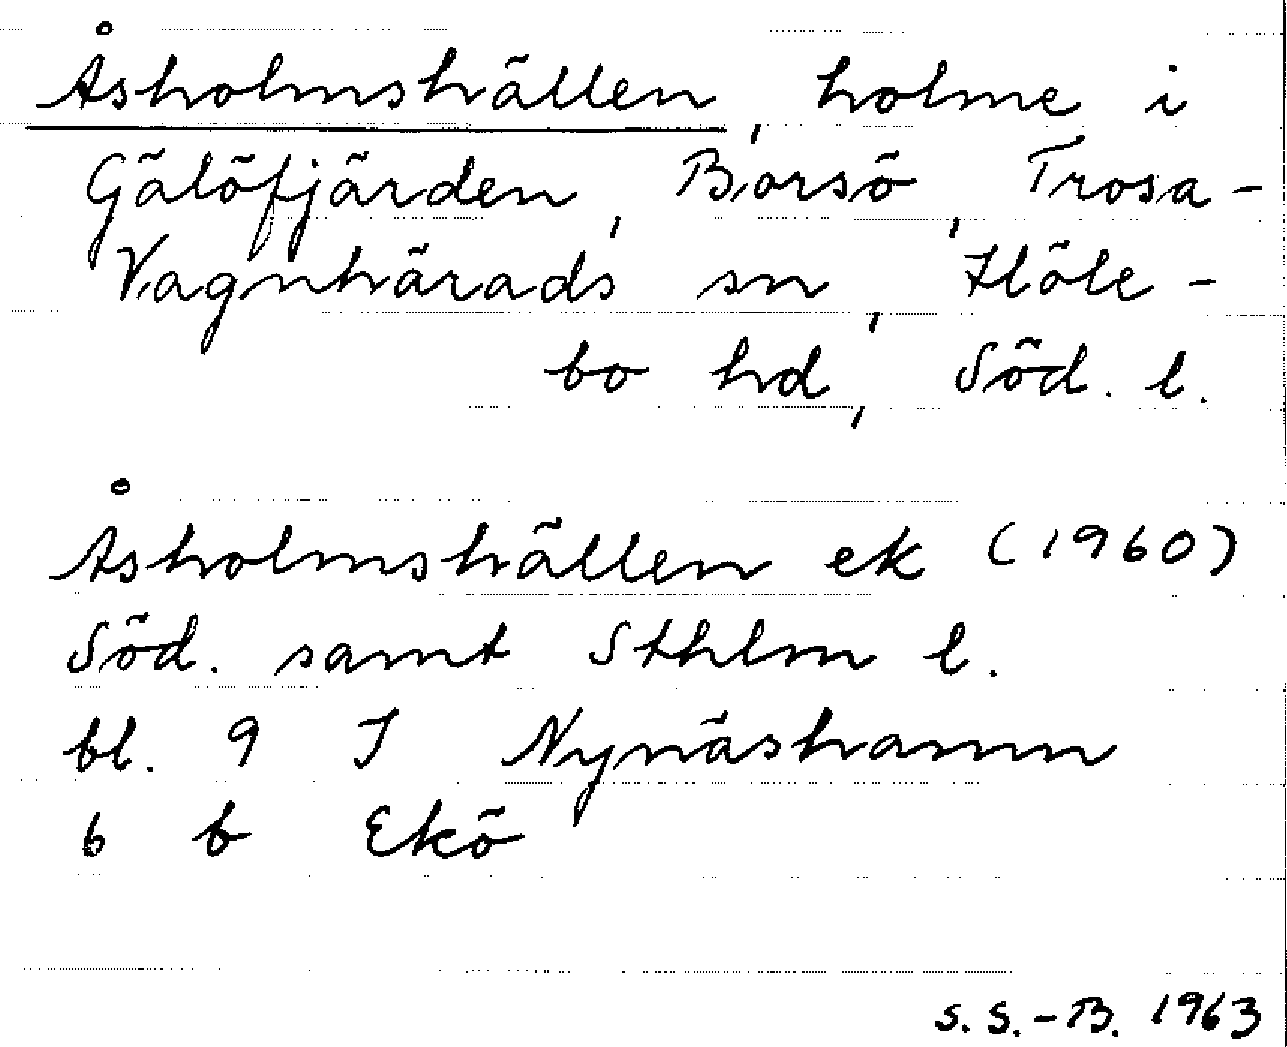 Åsholmshällen, holme i
Gälöfjärden, Borsö, Trosa-
Vagnhärads sn, Höle-
bo hd, Söd. l.
Åsholmshällen ek (1960)
Söd. samt Sthlm l.
bl. 9 I Nynäshamn
6 b Ekö
S. S.-B. 1963